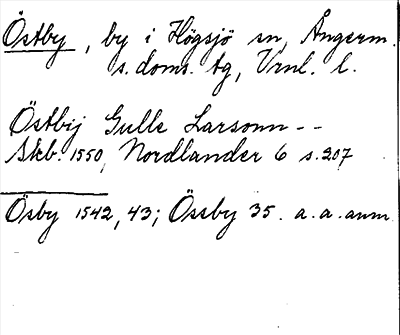 Östby, by i Högsjö sn, Ångerm.
s. doms. tg, Vrnl. l.
Östbij Gulle Larsonn - -
Skb. 1550, Nordlander 6 s. 207
Ösby 1542, 43; Össby 35. a. a. anm